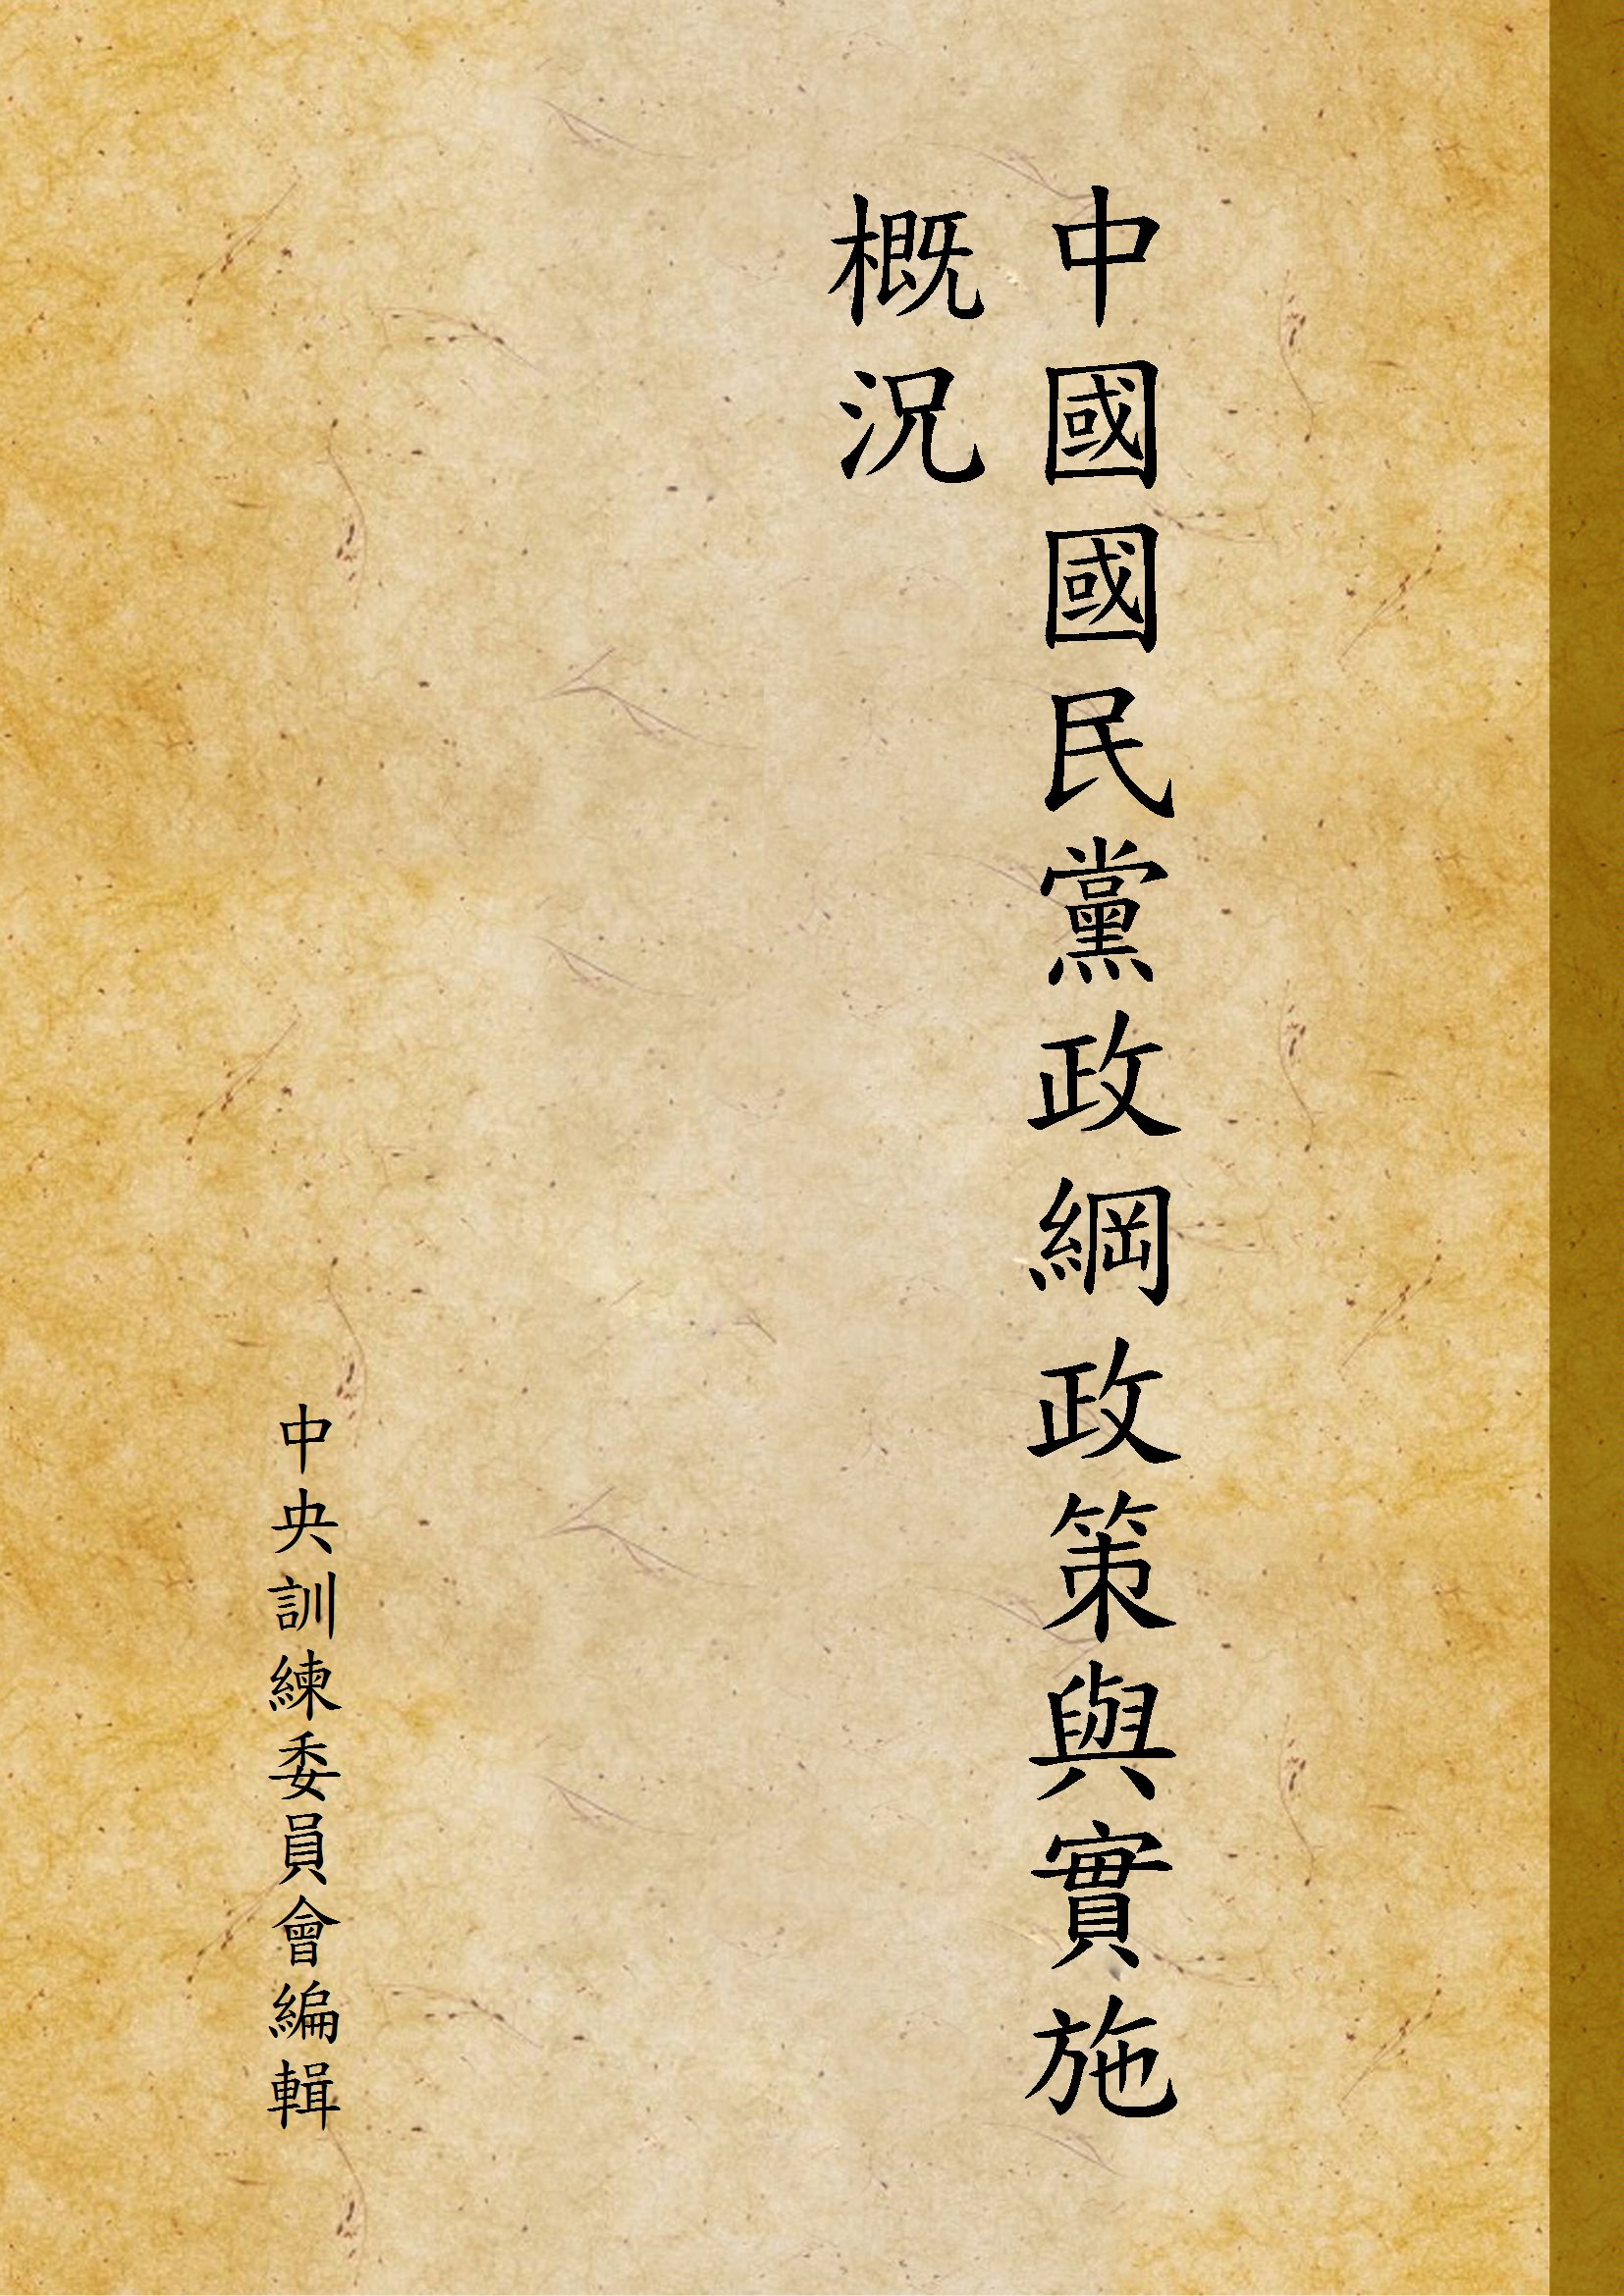 中國國民黨政綱政策與實施
概況
中央訓練委員會編輯